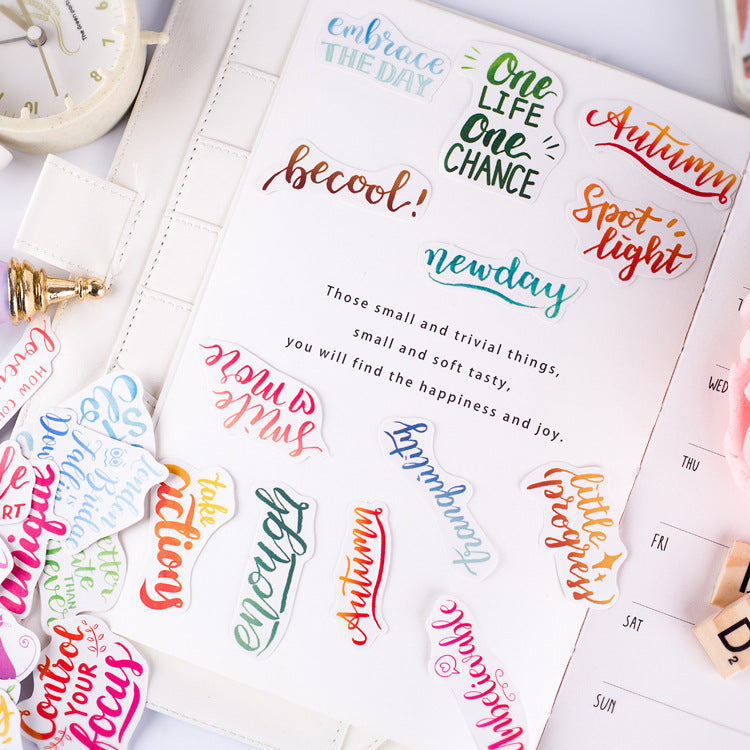 embrace
THE DAY
One
LIFE
One
CHANCE
Autumn
becool!
Spot
light
newday
Those small and trivial things,
small and soft tasty,
you will find the happiness and joy.
smile
a more
tranquility
little
progress
take
actions
enough
Autumn
Unbelievable
HOW
unique
London
Bridge
Fallin
is
Down
THAN
Control
YOUR
focus
WED
THU
FRI
SAT
SUN
D
2